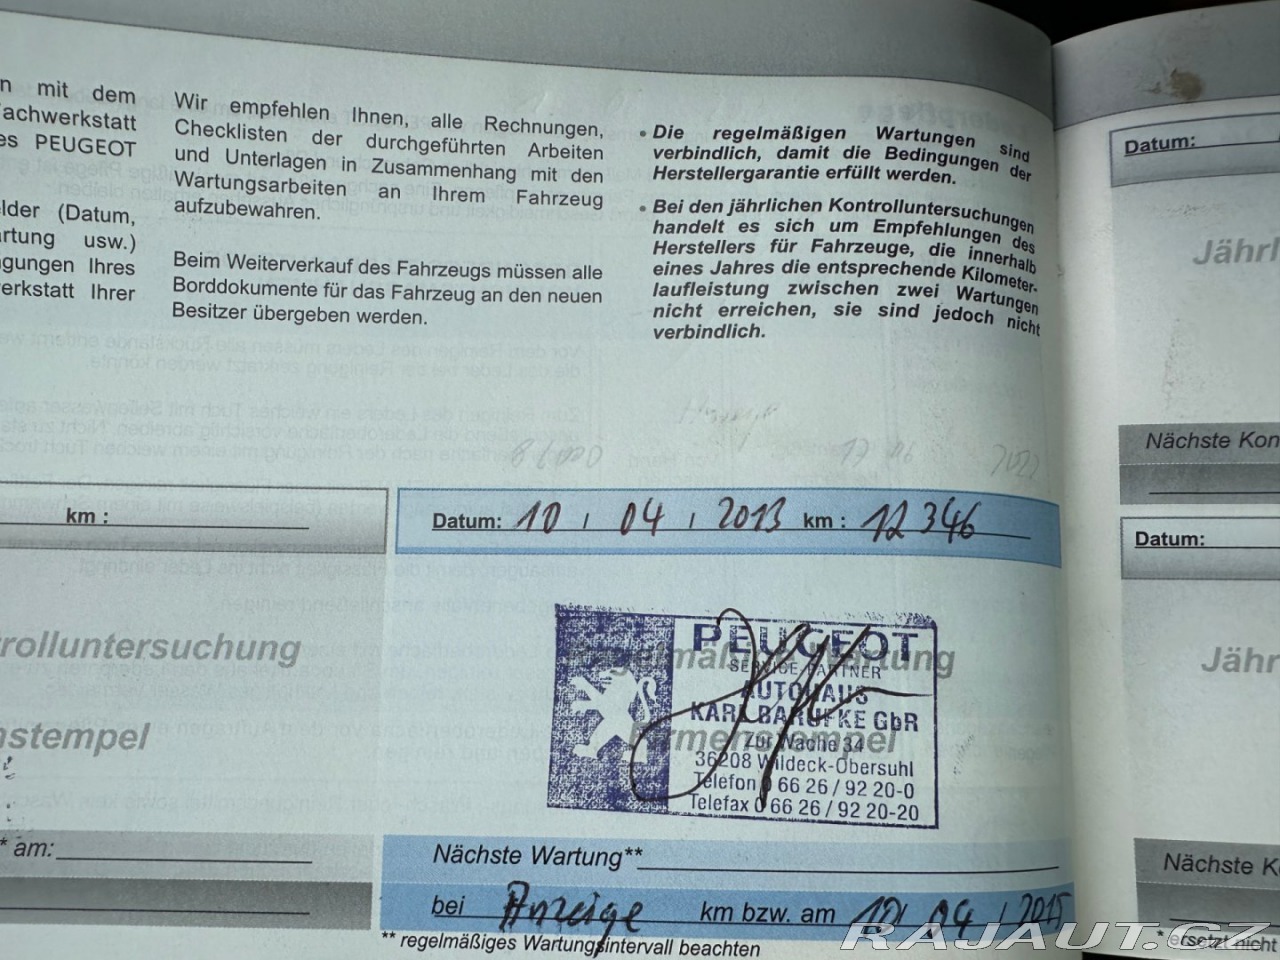 n mit dem
Fachwerkstatt
es PEUGEOT
elder (Datum,
artung usw.)
gungen Ihres
erkstatt Ihrer
Wir empfehlen Ihnen, alle Rechnungen,
Checklisten der durchgeführten Arbeiten
und Unterlagen in Zusammenhang mit den
Wartungsarbeiten an Ihrem Fahrzeug
aufzubewahren.
Beim Weiterverkauf des Fahrzeugs müssen alle
Borddokumente für das Fahrzeug an den neuen
Besitzer übergeben werden.
• Die regelmäßigen Wartungen sind
verbindlich, damit die Bedingungen der
Herstellergarantie erfüllt werden.
• Bei den jährlichen Kontrolluntersuchungen
handelt es sich um Empfehlungen des
Herstellers für Fahrzeuge, die innerhalb
eines Jahres die entsprechende Kilometer-
laufleistung zwischen zwei Wartungen
nicht erreichen, sie sind jedoch nicht
verbindlich.
km :
rolluntersuchung
nstempel
* am:
Datum: 10 / 04 / 2013 km : 12 346
Regelmäßige Wartung
Firmenstempel
PEUGEOT
SERVICE-PARTNER
AUTOHAUS
KARL BARUFKE GbR
Zur Wache 34
36208 Wildeck-Obersuhl
Telefon 0 66 26 / 92 20-0
Telefax 0 66 26 / 92 20-20
Nächste Wartung**
bei Anzeige km bzw. am 10 / 04 / 2015
** regelmäßiges Wartungsintervall beachten
Datum:
Jährl
Nächste Kon
Datum:
Jähr
Nächste Ko
* ersetzt nicht
RAJAUT.CZ